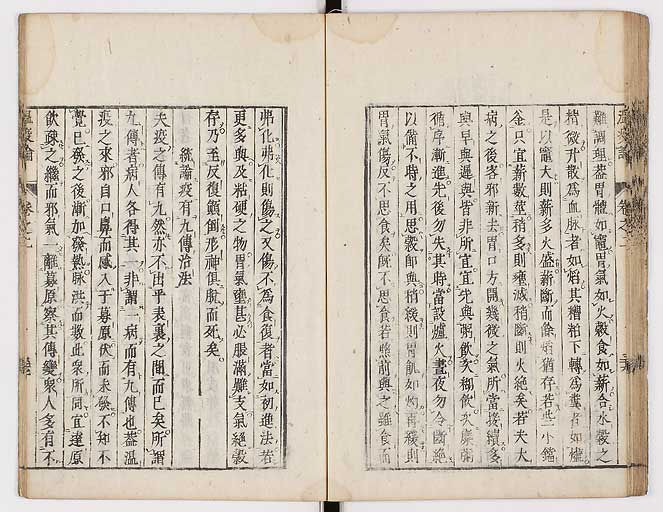 難調理蓋胃體如竈胃氣如火穀食如薪合水穀之
精微升散為血脉者如焰其糟粕下轉為糞者如燼
是以竈大則薪多火盛薪斷而餘焰猶存若些小鐺
釜只宜薪數莖稍多則壅滅稍斷則火絕矣若夫大
病之後客邪新去胃口方開幾微之氣所當接續多
與早與遲與皆非所宜宜先與粥飲次糊飲次糜粥
循序漸進先後勿失其時當設爐火晝夜勿令斷絕
以備不時之用思穀即與稍緩則胃飢如灼再緩則
胃氣傷反不思食矣既不思食若照前與之雖食而
弗化弗化則傷之又傷不為食復者當如初進法若
更多與及粘硬之物胃氣壅甚必脹滿難支氣絕穀
存乃至反復顛倒形神俱脫而死矣
統論疫有九傳治法
夫疫之傳有九然亦不出乎表裏之間而已矣所謂
九傳者病人各得其一非謂一病而有九傳也蓋溫
疫之來邪自口鼻而感入于募原伏而未發不知不
覺已發之後漸加發熱脉洪而數此衆所同宜達原
飲疎之繼而邪氣一離募原察其傳變衆人多有不
溫疫論 卷之二